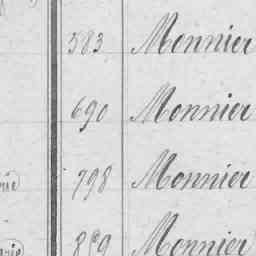 583 Monnier
690 Monnier
798 Monnier
Monnier